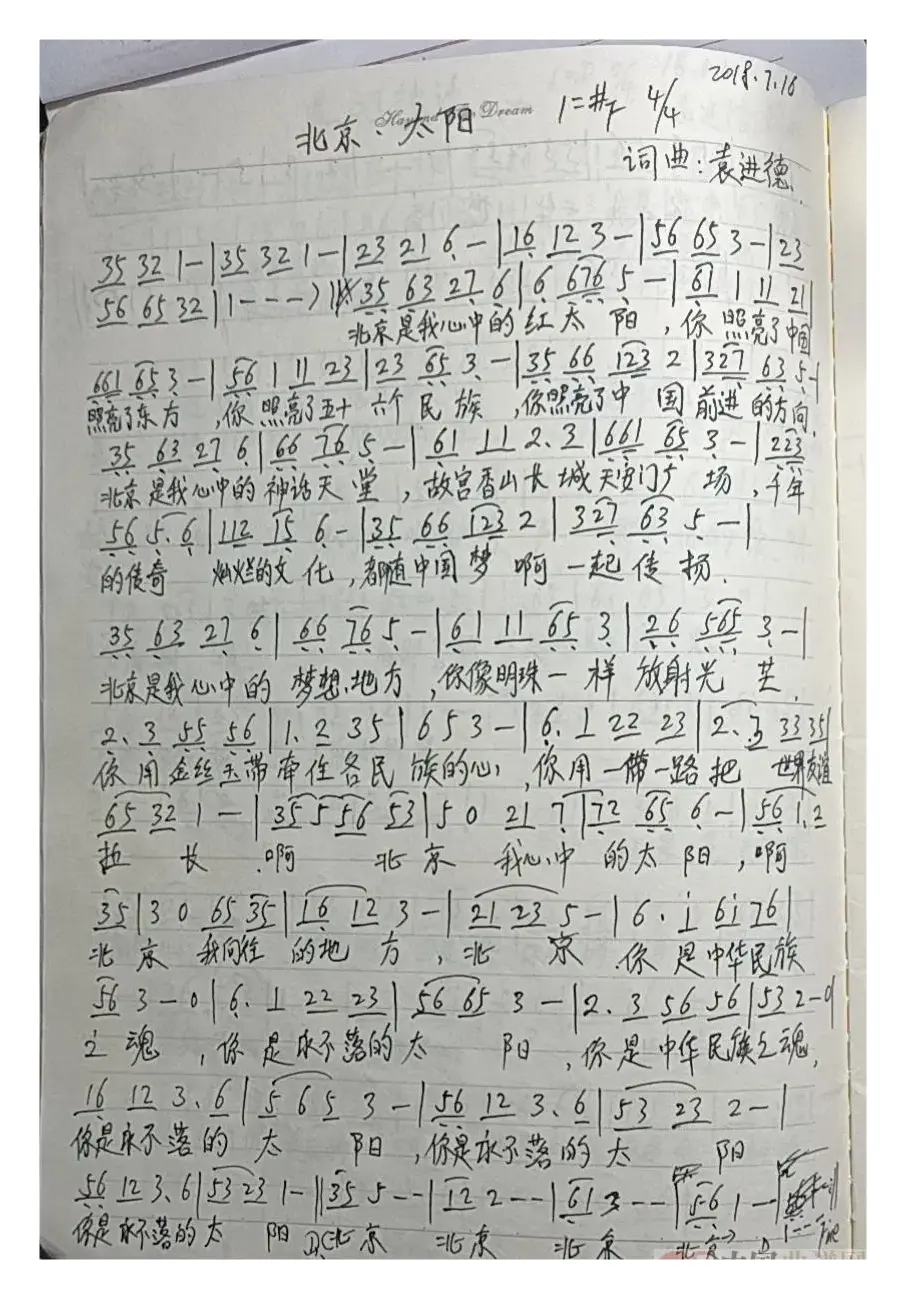 2018.7.16
北京、太阳 Dream 1=#F 4/4
词曲：袁进德
35 32 1 - | 35 32 1 - | 23 21 6 - | 16 12 3 - | 56 65 3 - | 23
56 65 32 | 1 - - - ) 35 63 27 6 | 6 676 5 - | 61 1 11 21 |
北京是我心中的红太阳，你照亮了中国
661 65 3 - | 56 1 11 23 | 23 65 3 - | 35 66 123 2 | 327 63 5 - |
照亮了东方，你照亮了五十六个民族，你照亮了中国前进的方向，
35 63 27 6 | 66 76 5 - | 61 11 2. 3 | 661 65 3 - | 223
北京是我心中的神话天堂，故宫香山长城天安门广场，千年
56 5. 6 | 112 15 6 - | 35 66 123 2 | 327 63 5 - |
的传奇 灿烂的文化，都随中国梦啊一起传扬.
35 63 27 6 | 66 76 5 - | 61 11 65 3 | 26 565 3 - |
北京是我心中的梦想地方，你像明珠一样放射光芒.
2. 3 55 56 | 1. 2 35 | 6 5 3 - | 6. 1 22 23 | 2. 3 33 35 |
你用金丝玉带牵住各民族的心，你用一带一路把世界友谊
65 32 1 - | 35 5 56 53 | 5 0 21 7 | 72 65 6 - | 56 1. 2
拉长.啊 北京 我心中的太阳，啊
35 | 3 0 65 35 | 16 12 3 - | 21 23 5 - | 6. i 6i 76 |
北京 我向往的地方，北京.你是中华民族
56 3 - 0 | 6. 1 22 23 | 56 65 3 - | 2. 3 56 56 | 53 2 - 0 |
之魂，你是永不落的太阳，你是中华民族之魂，
16 12 3. 6 | 5 6 5 3 - | 56 12 3. 6 | 53 23 2 - |
你是永不落的太阳，你是永不落的太阳
56 12 3. 6 | 53 23 1 - || 35 5 - - | 12 2 - - | 61 3 - - | 56 1 - 1 - - -
你是永不落的太阳 D.C 北京 北京 北京 北京 Fine